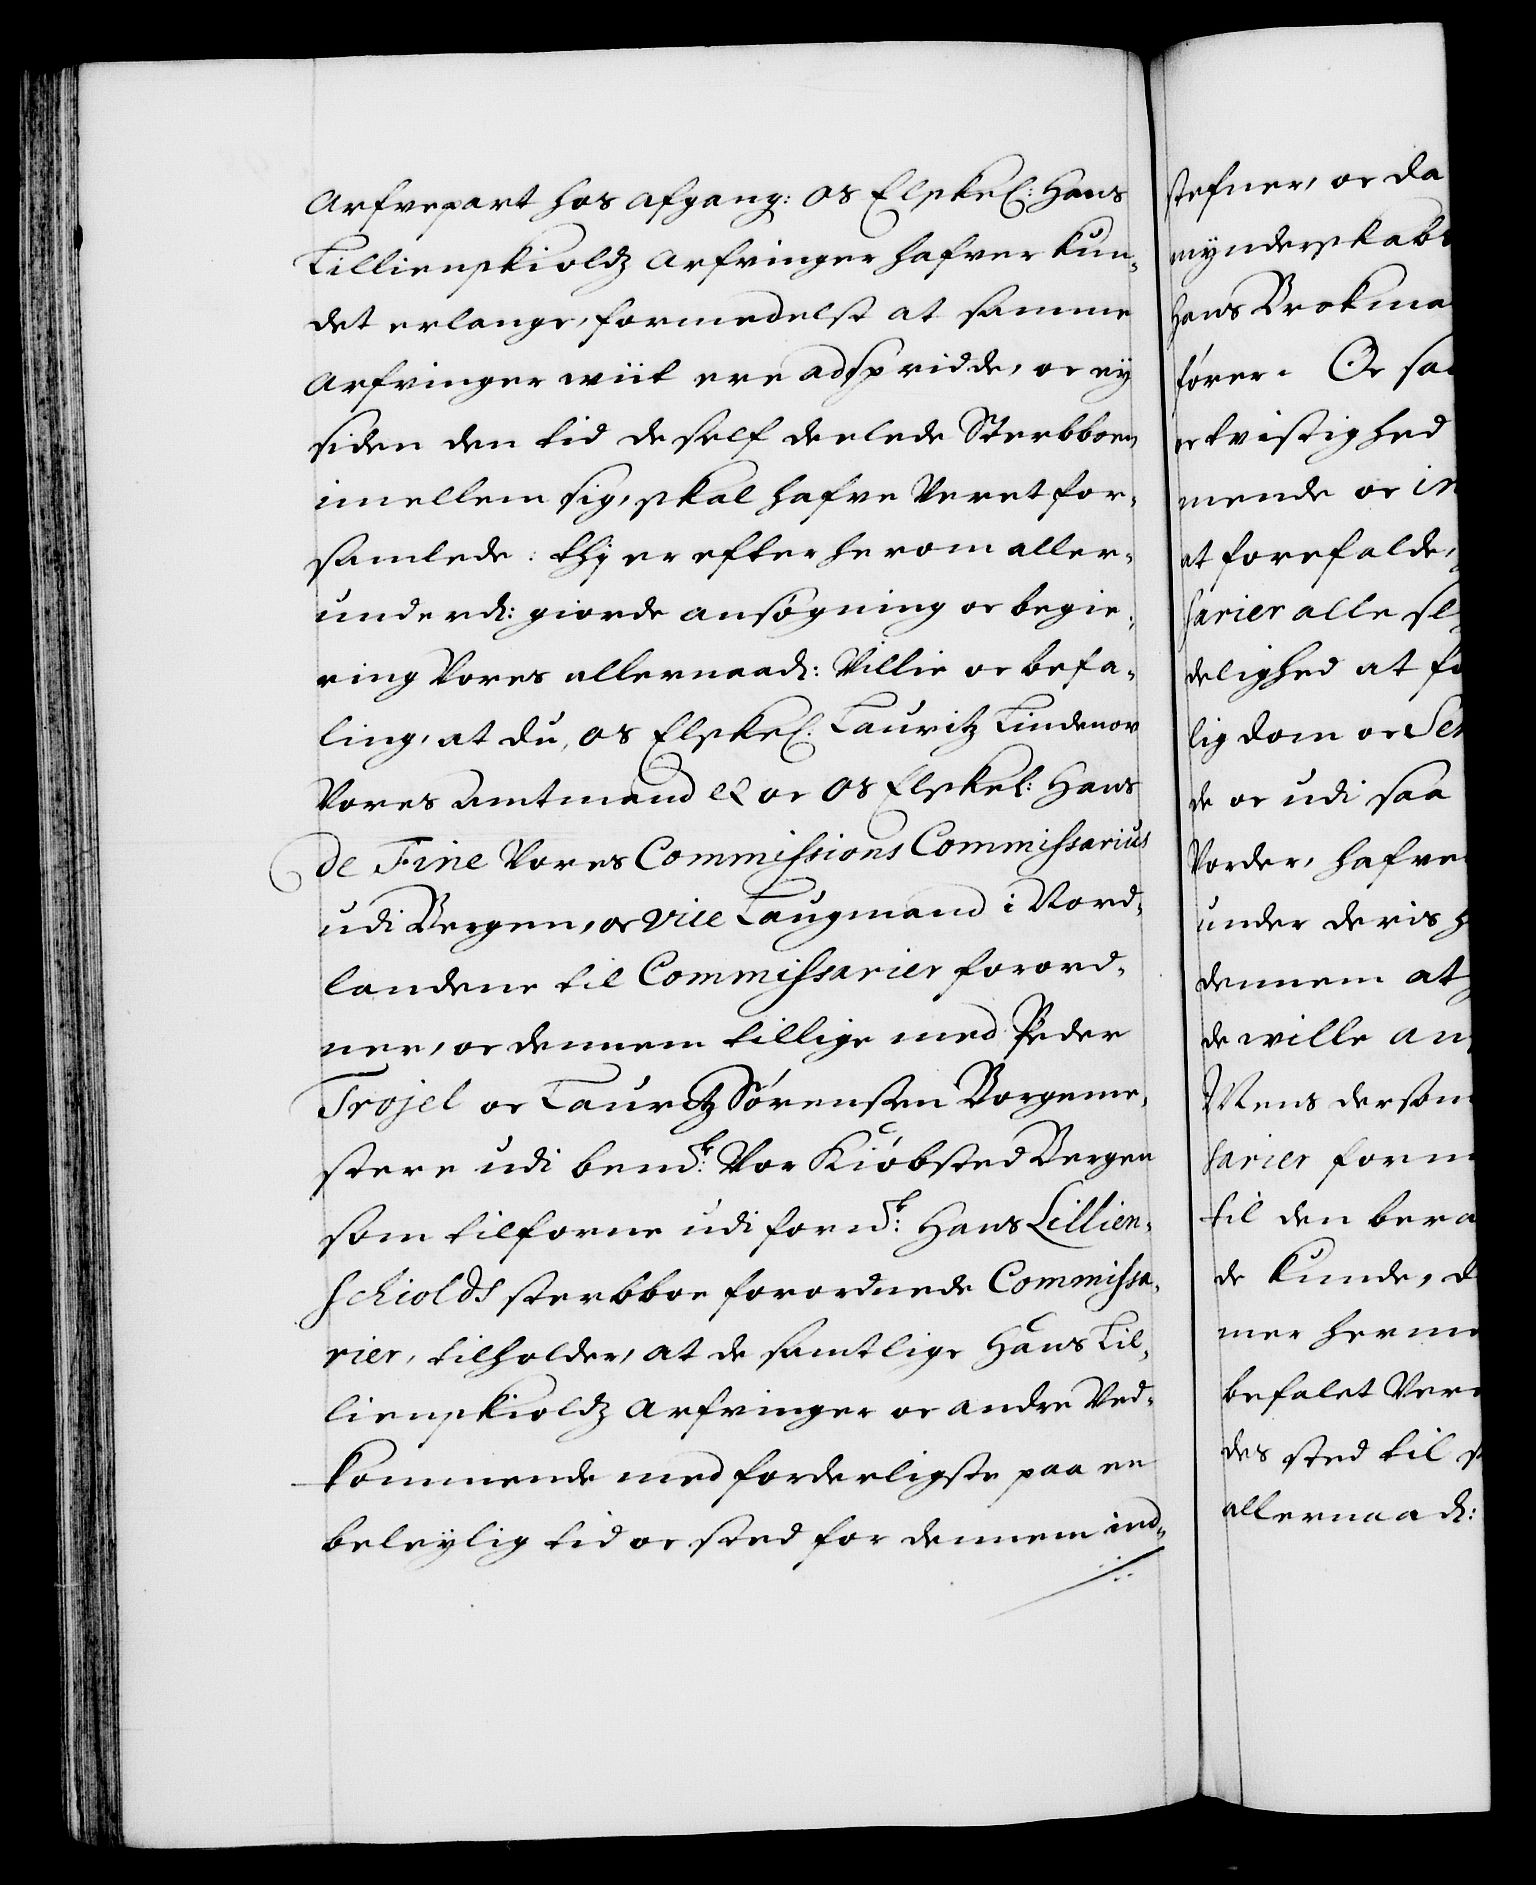 Arfvepart hos afgang: os Elskel: Hans
Lillienskioldz Arfvinger hafver kun-
det erlange, formedelst at samme
Arfvinger wiit ere adspridde, oc ey
siden den tid de self deelede Sterbboen
imellem sig, skal hafve Veret for-
samlede: thi er efter herom aller-
underd: giorde ansøgning oc begie-
ring Vores allernaad: Villie oc befa-
ling, at du, os Elskel. Lauritz Lindenow
Vores Amtmand &c oc os Elskel: Hans
de Fine Vores Commissions Commissarius
udi Bergen, oc vice Laugmand i Nord-
landene til Commissarier forord-
ner, oc dennem tillige med Peder
Trojel oc Lauritz Sørensen Borgeme-
stere udi bemd.te: Vor Kiøbsted Bergen
som tilforne udi formd.te: Hans Lillien-
schiolds sterbboe forordnede Commissa-
rier, tilholder, at de samtlige Hans Lil-
lienskioldz Arfvinger oc andre Ved-
kommende med forderligste paa en
beleylig tid oc sted for dennem ind-
stefner, oc da
mynderskabs
Hans Brokma
fører. Oc saa
oc tvistighed
mende oc in
at forefalde,
sarier alle sl
delighed at fo
lig dom oc Sen
de oc udi saa
Vorder, hafve
under deris h
dennem at
de wille an
Mens dersom
sarier form
til den bera
de kunde, d
mer herme
befalet Vere
des sted til s
allernaad: